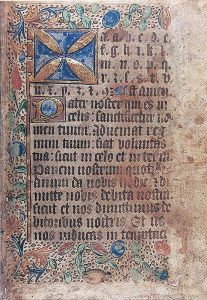 a. a. b. c. d. e. f.
g. h. i. k. l.
m. n. o. p. q.
r. ꝛ. s. t.
est amen
Pater noster qui es in
celis: sanctificetur no
men tuum. Adueniat reg
num tuum fiat voluntas
tua: sicut in celo et in terra
Panem nostrum quoti
dianum da nobis hodie. Di
mitte nobis debita nostra
sicut et nos dimittimus de
bitoribus nostris. Et ne
nos inducas in temptaci